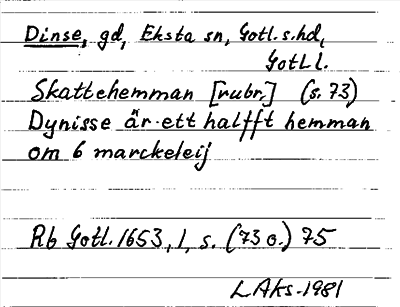 Dinse, gd, Eksta sn, Gotl. s. hd,
Gotl l.
Skattehemman [rubr.] (s. 73)
Dynisse är ett halfft hemman
om 6 marckeleij
Rb Gotl. 1653, 1, s. (73 o.) 75
LAKs. 1981